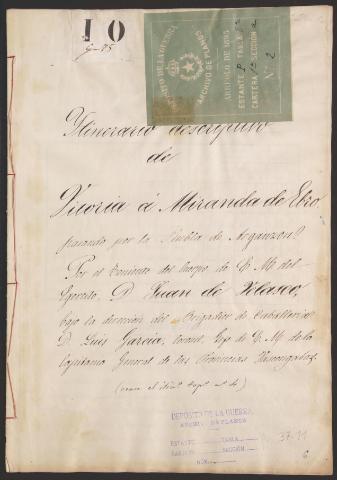 10
G-75
DEPOSITO DE LA GUERRA
ARCHIVO DE PLANOS
ARREGLO DE 1895
ESTANTE P TABLA 2ª
CARTERA 1ª SECCIÓN a
N° 2
Ytinerario descriptivo
de
Vitoria á Miranda de Ebro
pasando por la Puebla de Arganzon
Por el Teniente del Cuerpo de E. M. del
Ejército, D. Juan de Velasco,
bajo la direccion del Brigadier de Caballeria
D. Luis Garcia, Gefe de E. M. de la
Capitania General de las Provincias Vascongadas
DEPOSITO DE LA GUERRA
ARCHIVO DE PLANOS
ESTANTE TABLA
CARTERA SECCIÓN
NÚM.
37-11
6